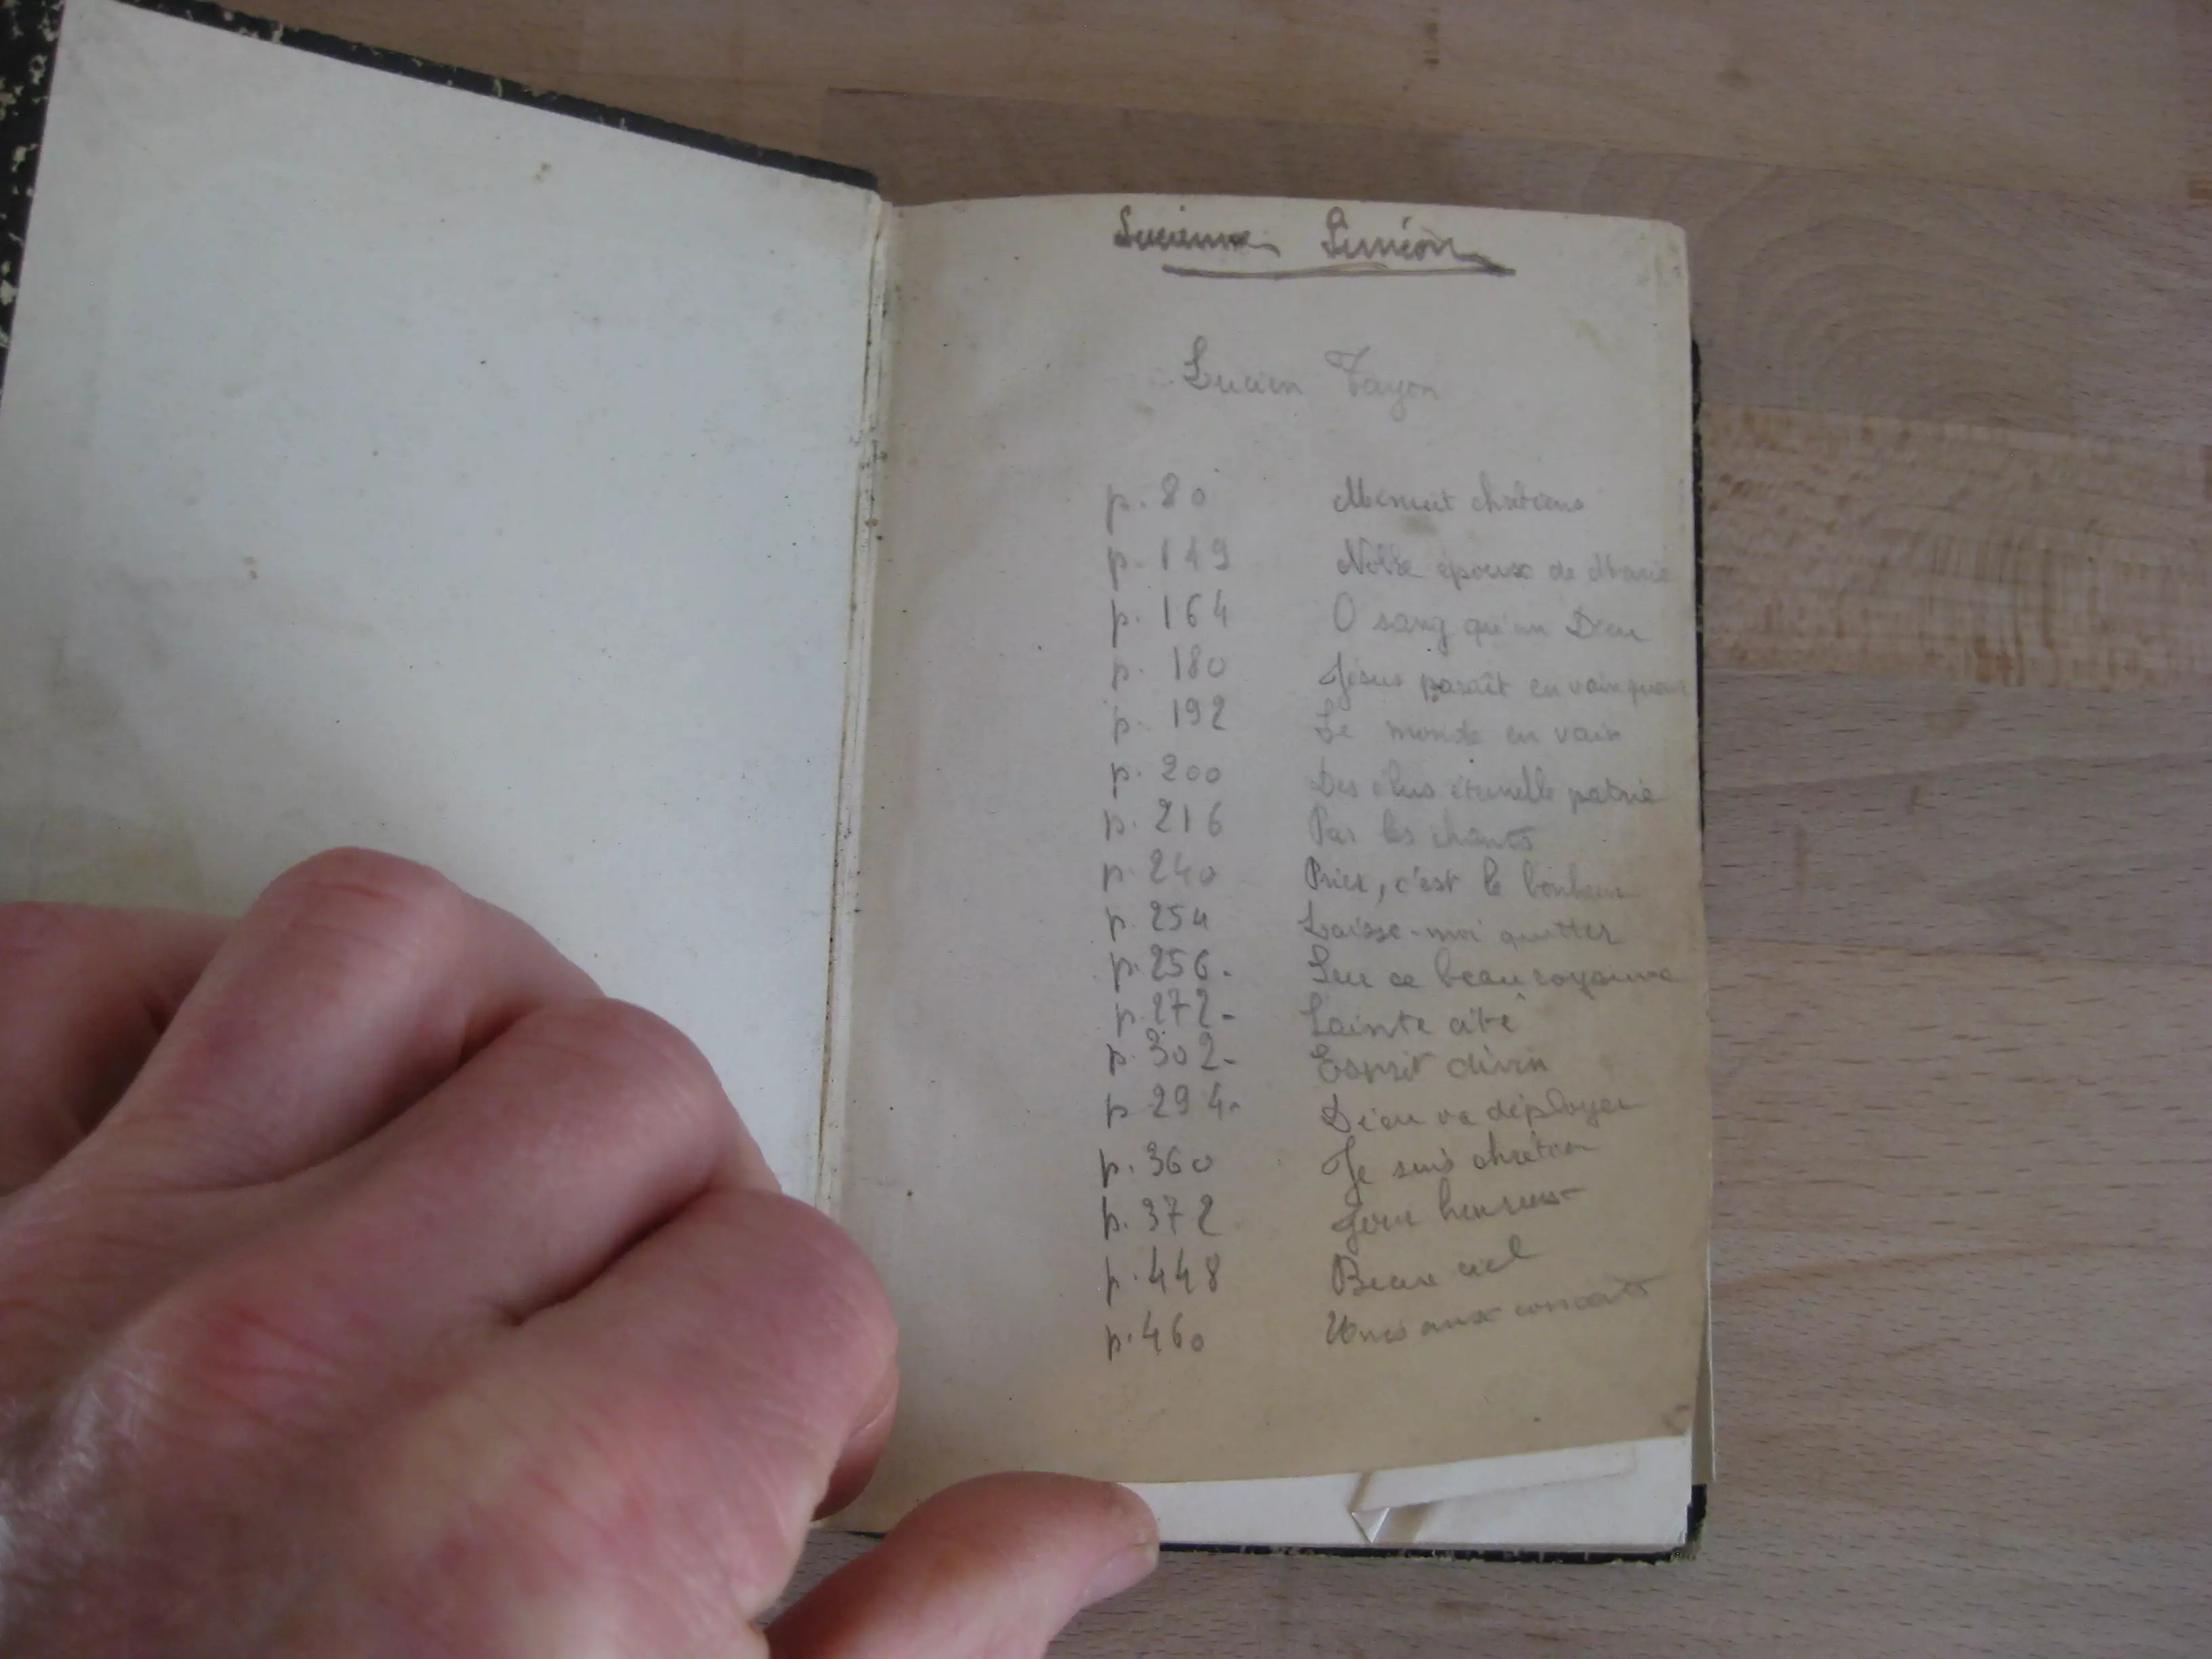 Lucienne Siméon
Lucien Tayon
p. 80 Minuit chrétiens
p. 149 Noble époux de Marie
p. 164 O sang qu'un Dieu
p. 180 Jésus paraît en vainqueur
p. 192 Le monde en vain
p. 200 Des élus éternelle patrie
p. 216 Par les chants
p. 240 Prier, c'est le bonheur
p. 254 Laisse-moi quitter
p. 256. Sur ce beau royaume
p. 272- Sainte cité
p. 302- Esprit divin
p 294- Dieu va déployer
p. 360 Je suis chrétien
p. 372 Jour heureux
p. 448 Beau ciel
p. 460 Unis aux concerts